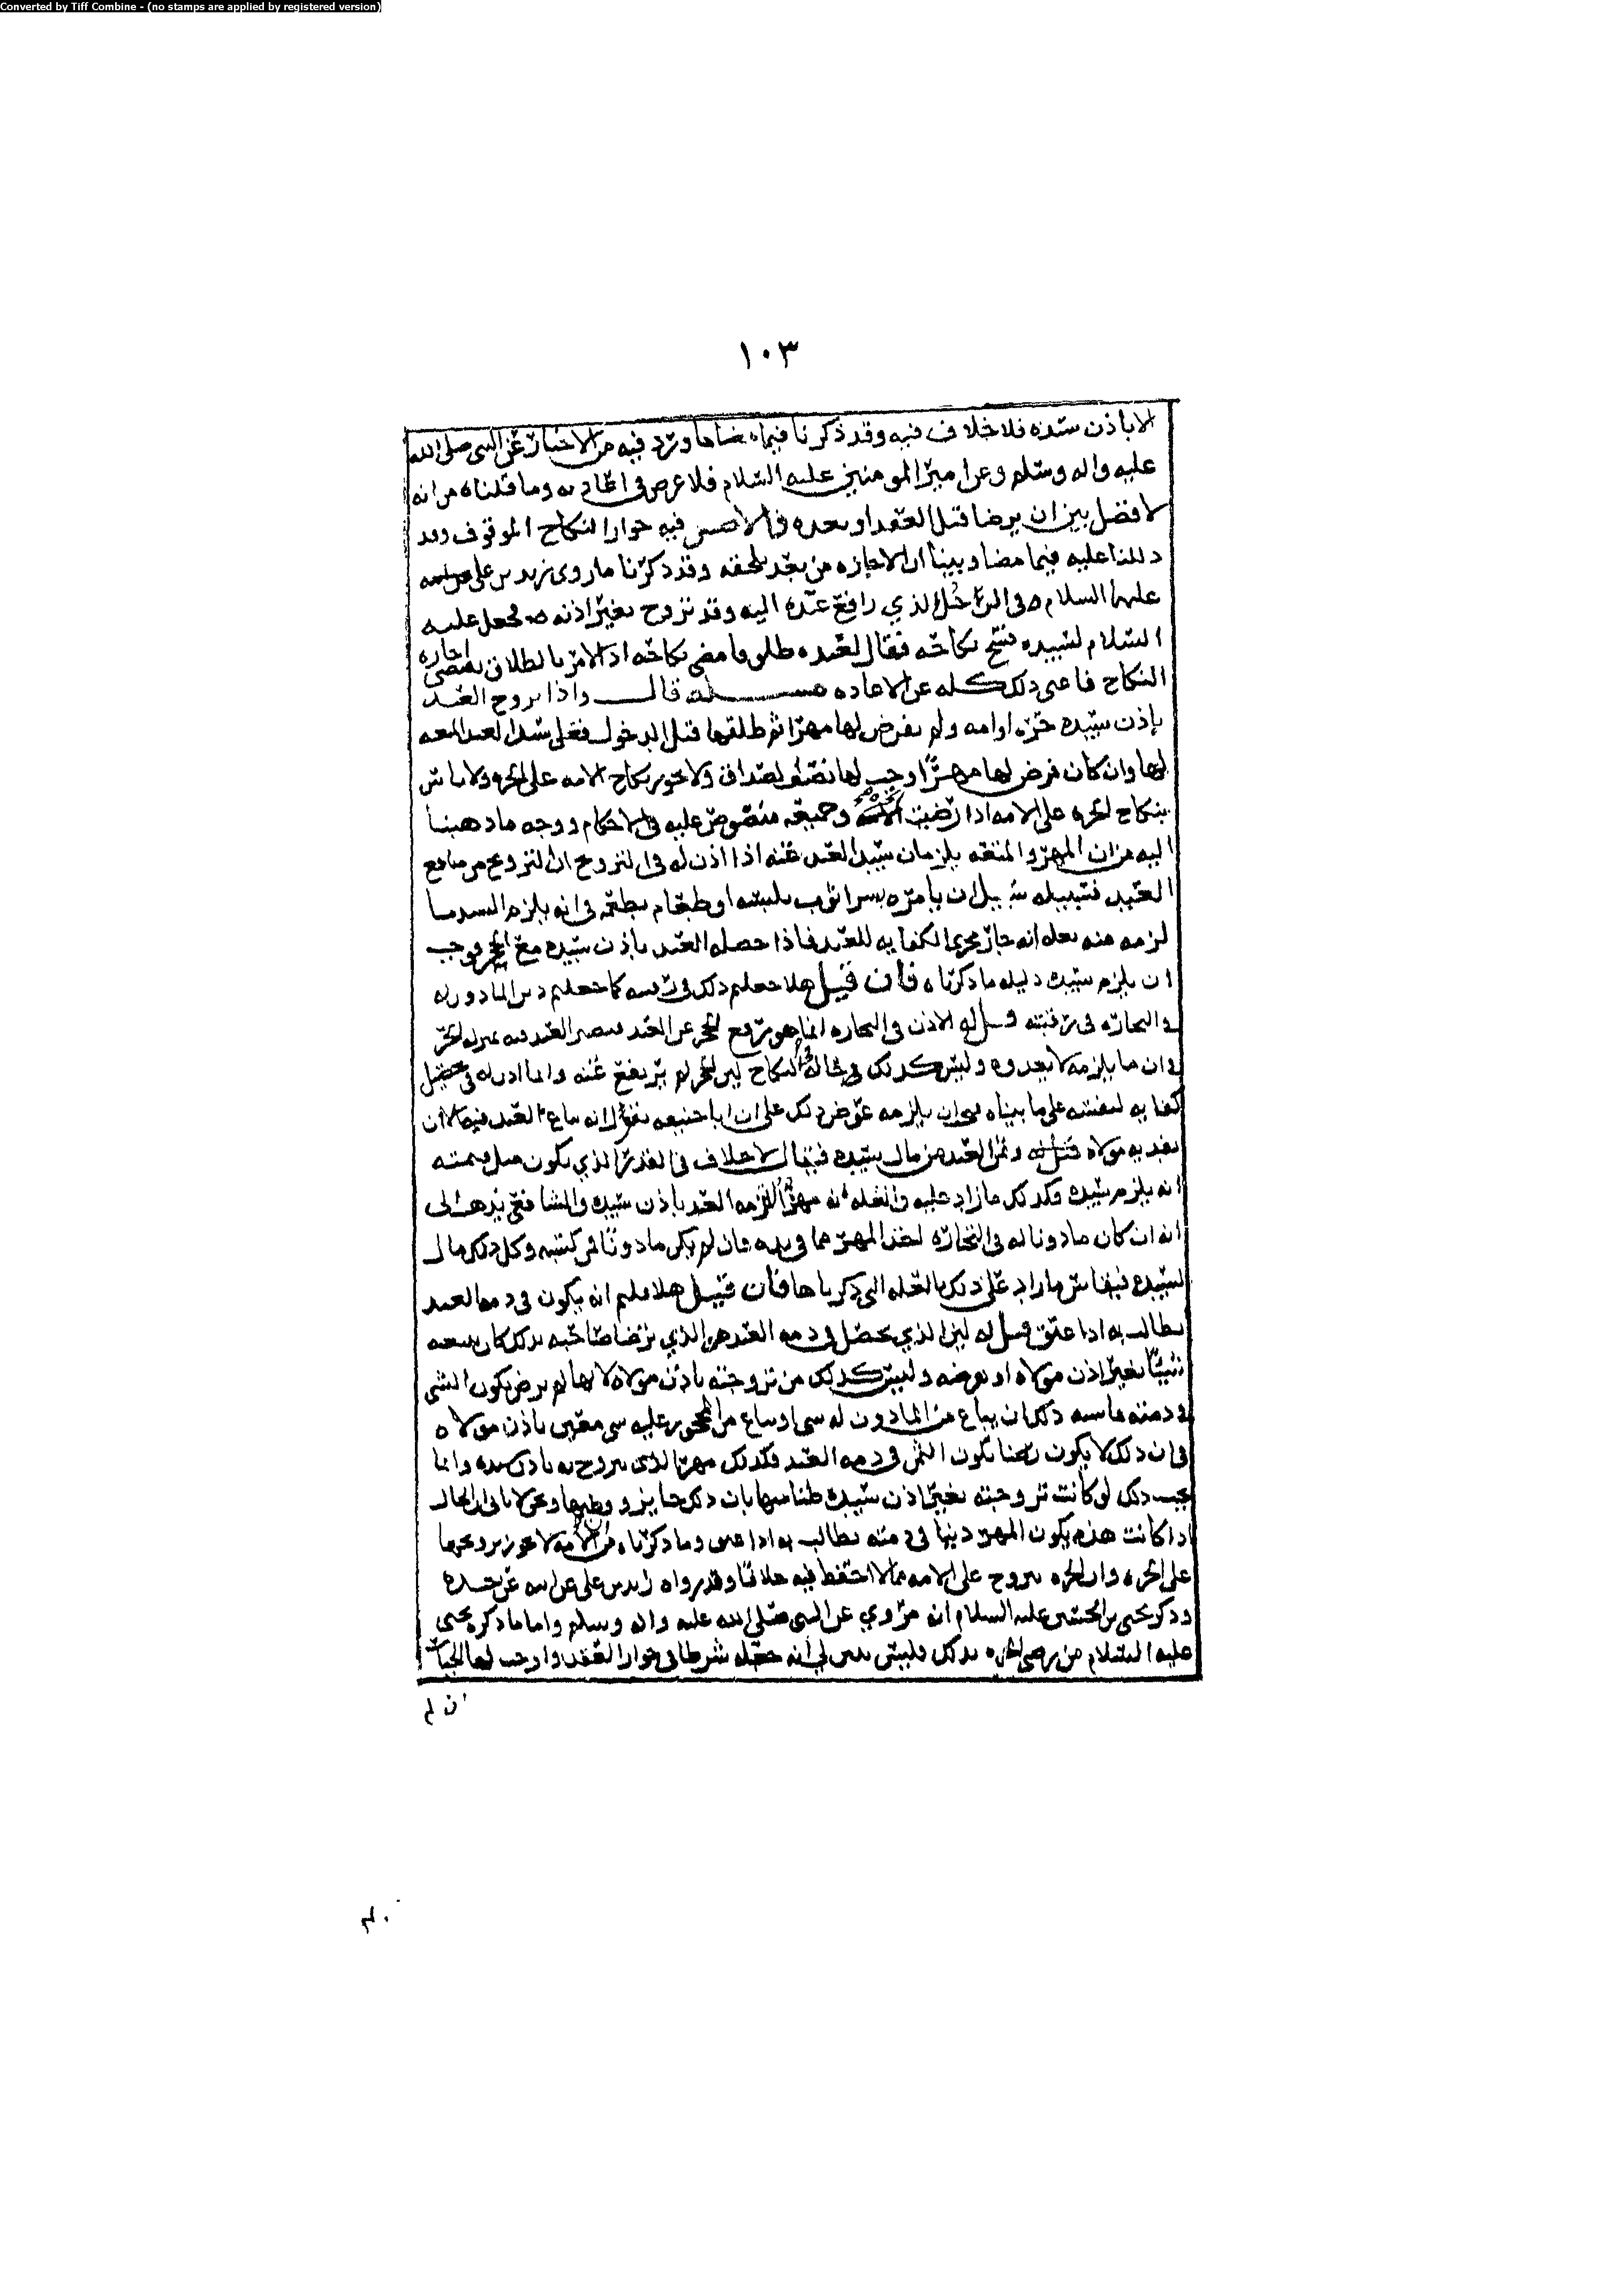 Converted by Tiff Combine - (no stamps are applied by registered version)
١٠٣
الا باذن سيده فلا خلاف فيه وقد ذكرنا فيما مضا ما ورد فيه من الاخبار عن النبي صلى الله
عليه واله وسلم وعن امير المومنين عليه السلام فلا غرض في اعادته وما قلناه من انه
لا فصل بين ان يرضا قبل العقد او بعده فالاصل فيه جواز النكاح الموقوف وقد
دللنا عليه فيما مضا وبينا ان الاجازه من بعد تلحقه وقد ذكرنا ما روى زيد بن على عن
عليهم السلام في الرجل الذي رافع عبده اليه وقد تزوج بغير اذنه فجعل عليه
السلام لسيده فسخ نكاحه فقال لعبده طلق فامضى نكاحه اذ الامر بالطلاق يقتضي اجازه
النكاح فاغنى ذلك كله عن الاعاده مسله قال واذا تزوج العبد
باذن سيده حره او امه ولم يفرض لها مهرا ثم طلقها قبل الدخول فعلى سيد العبد المتعه
لها وان كان فرض لها مهرا وجب لها نصف الصداق ولا يجوز نكاح الامه على الحره ولا باس
بنكاح الحره على الامه اذا رضيت الحره وجميعه منصوص عليه في الاحكام ووجه ما ذهبنا
اليه من ان المهر والمتعه يلزمان سيد العبد عنه اذا اذن له في التزوج ان التزويج من منافع
العبد فسبيله سبيل ان يامره بشرا ثوب يلبسه او طعام يطعمه في انه يلزم السيد ما
لزمه منه بعله انه جار مجرى الكفايه للعبد فاذا حصله العبد باذن سيده مع الحجر وجب
ان يلزم سيده دليله ما ذكرناه فان قيل هلا جعلتم ذلك في رقبته كما جعلتم دين الماذون له
في التجاره في رقبته قيل له الاذن في التجاره انما هو رفع الحجر عن العبد فيصير العبد فيه بمنزله الحر
في ان ما يلزمه لا يعدوه وليس كذلك في مساله النكاح لان الحجر لم يرتفع عنه وانما اذن له في تحصيل
كفايه لنفسه على ما بيناه فيجب ان يلزمه عوض ذلك على ان ابا حنيفه يقول انه يباع العبد فيه الا ان
يفديه مولاه وثمن العبد من مال سيده فبان ان لا خلاف في القدر الذي يكون مثل قيمته
انه يلزم سيده فكذلك ما زاد عليه والعله انه مهر لزمه العبد باذن سيده والشافعي يذهب الى
انه ان كان ماذونا له في التجاره اخذ المهر مما في يده فان لم يكن ماذونا فمن كسبه وكل ذلك مال
لسيده فيقاس ما زاد على ذلك بالعله التي ذكرناها فان قيل هلا قلتم انه يكون في ذمه العبد
يطالب به اذا عتق قيل له ان الذي يحصل في ذمه العبد هو الذي يرضا صاحبه بذلك كان يبيعه
شيئا بغير اذن مولاه او يقرضه وليس كذلك من تزوجته باذن مولاه لانها لم ترض بكون الشي
في ذمته ذلك ان يباع من الماذون له شي او يباع من المحجور عليه شي معين باذن مولاه
في ان ذلك لا يكون رضا بكون الثمن في ذمه العبد فكذلك مهر الذي يتزوج به باذن سيده وانما
يجب ذلك لو كانت تزوجته بغير اذن سيده ظنا منها بان ذلك جايز ووطيها ونحن لا نابى ان الحال
اذا كانت هذه يكون المهر دينا في ذمته يطالب به اذا عتق وما ذكرناه من ان الامه لا يجوز تزويجها
على الحره وان الحره تتزوج على الامه مما لا احفظ فيه خلافا وقد رواه زيد بن على عن ابيه عن جده
وذكر يحيى بن الحسين عليه السلام انه مروي عن النبي صلى الله عليه واله وسلم واما ما ذكره يحيى
عليه السلام من رضى الحره بذلك فليس يبين لي انه جعله شرطا في جواز العقد واوجب لها الخيار
ان لم